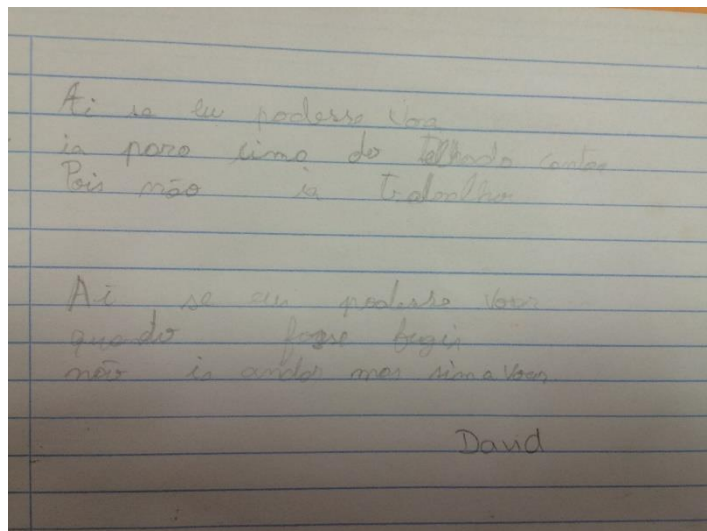 Ai se eu podesse voar
ia para cima do telhado cantar
Pois não ia trabalhar
Ai se eu podesse voar
quado fosse fugir
não ia andar mas sim a voar
David